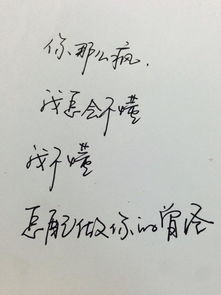 你那么疯.
我怎会不懂
我不懂
怎配做你的曾经